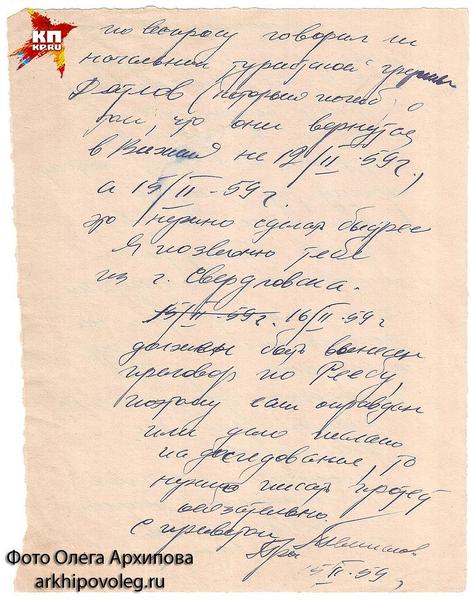 КП
KP.RU
по вопросу говорил ли
начальник туристской группы
Дятлов (который погиб) о
том, что они вернутся
в Вижай не 12/II-59 г.,
а 15/II-59 г.
это нужно сделать быстрее
Я позвоню тебе
из г. Свердловска.
15/II-59 г. 16/II-59 г
должен быть вынесен
приговор по Реесу,
поэтому если оправдан
или дело послано
на доследование, то
нужно писать протест
обязательно
С приветом
15/II-59 г
Фото Олега Архипова
arkhipovoleg.ru